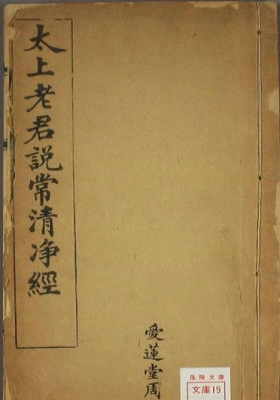 太上老君説常清净經
愛蓮堂周
文庫19